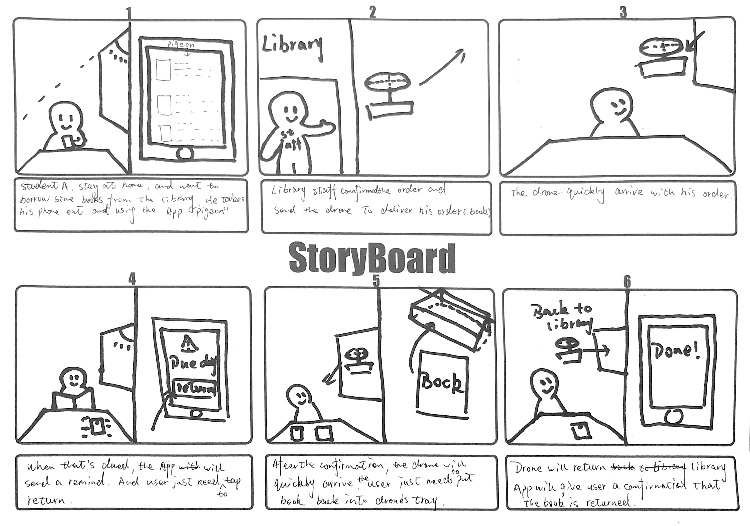 1
pigeon
Student A, stay at home, and want to
borrow some books from the library. He takes
his phone out and using the App "pigeon"
2
Library
staff
Library staff confirm the order and
send the drone to deliver his order (book)
3
The drone quickly arrive with his order
StoryBoard
4
Due day
return
when that's dued, the App with will
send a remind. And user just need to tap
return.
5
Book
After the confirmation, the drone will
quickly arrive the user just needs to put
book back into drone's tray.
6
Back to
library
Done!
Drone will return back to library library
App will give user a confirmation that
the book is returned.